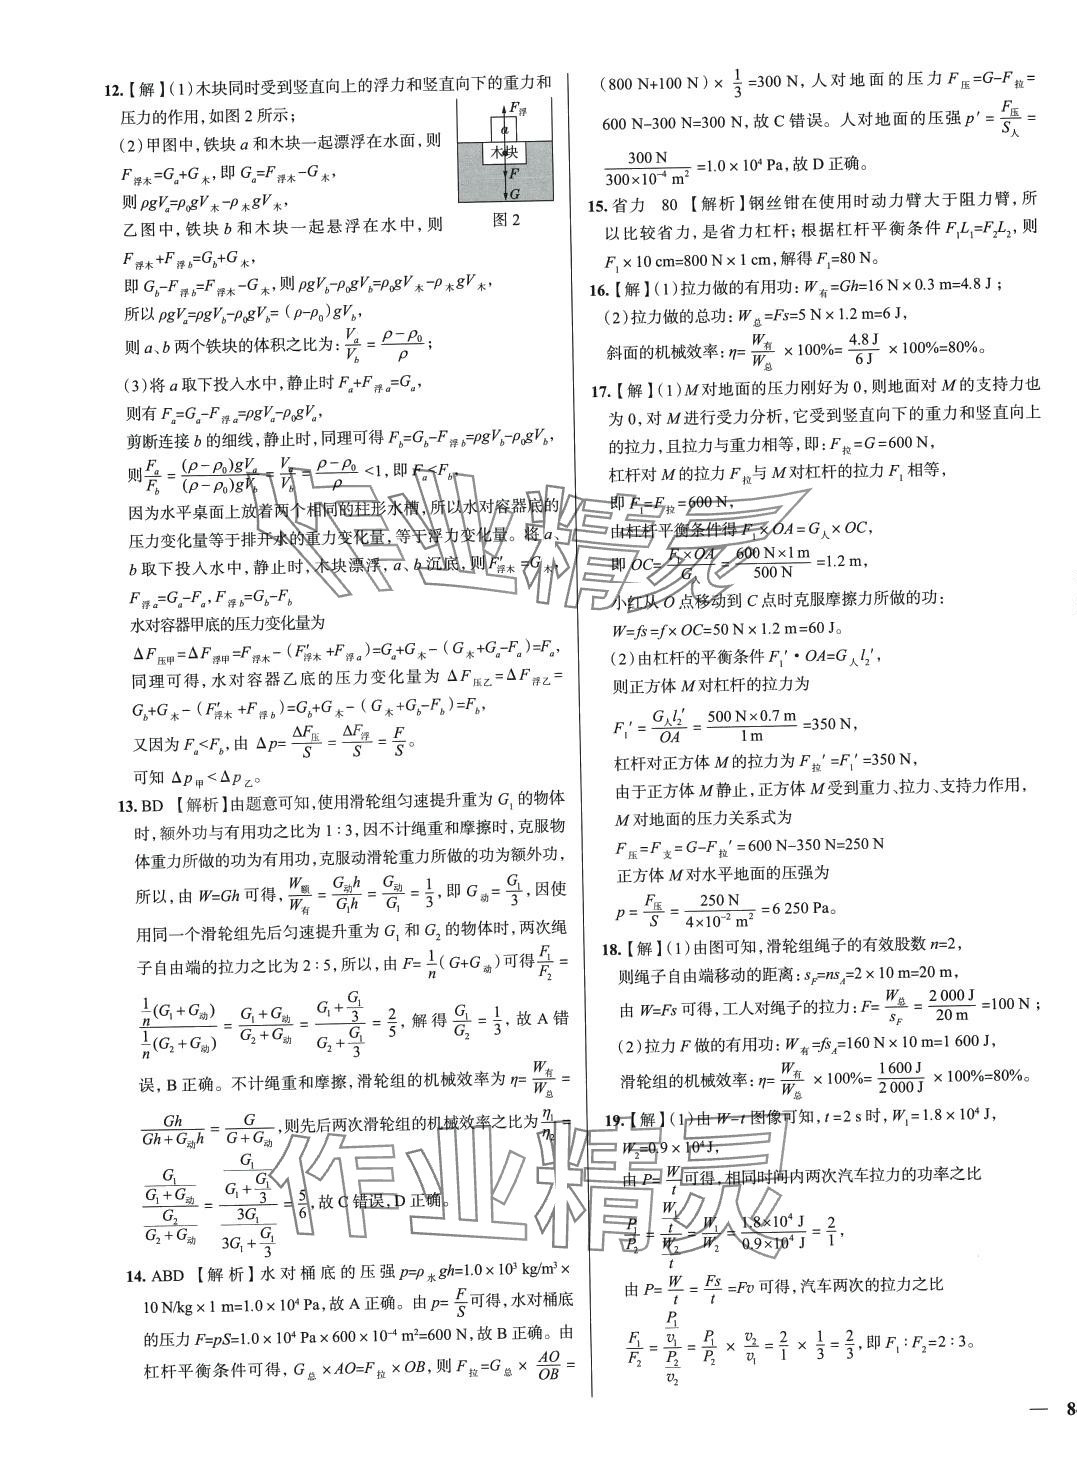 12.【解】(1)木块同时受到竖直向上的浮力和竖直向下的重力和
压力的作用,如图 2 所示;
(2)甲图中,铁块 a 和木块一起漂浮在水面,则
F浮木=Ga+G木,即 Ga=F浮木-G木,
则 ρgVa=ρ0gV木-ρ木gV木,
乙图中,铁块 b 和木块一起悬浮在水中,则
F浮木+F浮b=Gb+G木,
即 Gb-F浮b=F浮木-G木,则 ρgVb-ρ0gVb=ρ0gV木-ρ木gV木,
所以 ρgVa=ρgVb-ρ0gVb=(ρ-ρ0)gVb,
则 a、b 两个铁块的体积之比为:Va/Vb=(ρ-ρ0)/ρ;
F浮
a
木块
F
G
图 2
(3)将 a 取下投入水中,静止时 Fa+F浮a=Ga,
则有 Fa=Ga-F浮a=ρgVa-ρ0gVa,
剪断连接 b 的细线,静止时,同理可得 Fb=Gb-F浮b=ρgVb-ρ0gVb,
则 Fa/Fb=(ρ-ρ0)gVa/(ρ-ρ0)gVb=Va/Vb=(ρ-ρ0)/ρ<1,即 Fa<Fb,
因为水平桌面上放着两个相同的柱形水槽,所以水对容器底的
压力变化量等于排开水的重力变化量,等于浮力变化量。将 a、
b 取下投入水中,静止时,木块漂浮,a、b 沉底,则F′浮木=G木,
F浮a=Ga-Fa,F浮b=Gb-Fb
水对容器甲底的压力变化量为
ΔF压甲=ΔF浮甲=F浮木-(F′浮木+F浮a)=Ga+G木-(G木+Ga-Fa)=Fa,
同理可得,水对容器乙底的压力变化量为 ΔF压乙=ΔF浮乙=
Gb+G木-(F′浮木+F浮b)=Gb+G木-(G木+Gb-Fb)=Fb,
又因为 Fa<Fb,由 Δp=ΔF压/S=ΔF浮/S=F/S。
可知 Δp甲<Δp乙。
13. BD 【解析】由题意可知,使用滑轮组匀速提升重为 G1 的物体
时,额外功与有用功之比为 1∶3,因不计绳重和摩擦时,克服物
体重力所做的功为有用功,克服动滑轮重力所做的功为额外功,
所以,由 W=Gh 可得,W额/W有=G动h/G1h=G动/G1=1/3,即 G动=G1/3,因使
用同一个滑轮组先后匀速提升重为 G1 和 G2 的物体时,两次绳
子自由端的拉力之比为 2∶5,所以,由 F=1/n(G+G动)可得 F1/F2=
1/n(G1+G动)/1/n(G2+G动)=(G1+G动)/(G2+G动)=(G1+G1/3)/(G2+G1/3)=2/5,解得 G1/G2=1/3,故 A 错
误,B 正确。不计绳重和摩擦,滑轮组的机械效率为 η=W有/W总=
Gh/(Gh+G动h)=G/(G+G动),则先后两次滑轮组的机械效率之比为 η1/η2=
[G1/(G1+G动)]/[G2/(G2+G动)]=[G1/(G1+G1/3)]/[3G1/(3G1+G1/3)]=5/6,故 C 错误,D 正确。
14. ABD 【解析】水对桶底的压强 p=ρ水gh=1.0×10³ kg/m³×
10 N/kg×1 m=1.0×10⁴ Pa,故 A 正确。由 p=F/S 可得,水对桶底
的压力 F=pS=1.0×10⁴ Pa×600×10⁻⁴ m²=600 N,故 B 正确。由
杠杆平衡条件可得,G总×AO=F拉×OB,则 F拉=G总×AO/OB=
(800 N+100 N)×1/3=300 N,人对地面的压力 F压=G-F拉=
600 N-300 N=300 N,故 C 错误。人对地面的压强 p′=F压/S人=
300 N/300×10⁻⁴ m²=1.0×10⁴ Pa,故 D 正确。
15. 省力 80 【解析】钢丝钳在使用时动力臂大于阻力臂,所
以比较省力,是省力杠杆;根据杠杆平衡条件 F1L1=F2L2,则
F1×10 cm=800 N×1 cm,解得 F1=80 N。
16.【解】(1)拉力做的有用功:W有=Gh=16 N×0.3 m=4.8 J;
(2)拉力做的总功:W总=Fs=5 N×1.2 m=6 J,
斜面的机械效率:η=W有/W总×100%=4.8 J/6 J×100%=80%。
17.【解】(1)M 对地面的压力刚好为 0,则地面对 M 的支持力也
为 0,对 M 进行受力分析,它受到竖直向下的重力和竖直向上
的拉力,且拉力与重力相等,即:F拉=G=600 N,
杠杆对 M 的拉力 F拉与 M 对杠杆的拉力 F1 相等,
即 F1=F拉=600 N,
由杠杆平衡条件得 F1×OA=G人×OC,
即 OC=F1×OA/G人=600 N×1 m/500 N=1.2 m,
小红从 O 点移动到 C 点时克服摩擦力所做的功:
W=fs=f×OC=50 N×1.2 m=60 J。
(2)由杠杆的平衡条件 F1′·OA=G人l2′,
则正方体 M 对杠杆的拉力为
F1′=G人l2′/OA=500 N×0.7 m/1 m=350 N,
杠杆对正方体 M 的拉力为 F拉′=F1′=350 N,
由于正方体 M 静止,正方体 M 受到重力、拉力、支持力作用,
M 对地面的压力关系式为
F压=F支=G-F拉′=600 N-350 N=250 N
正方体 M 对水平地面的压强为
p=F压/S=250 N/4×10⁻² m²=6 250 Pa。
18.【解】(1)由图可知,滑轮组绳子的有效股数 n=2,
则绳子自由端移动的距离:sF=nsA=2×10 m=20 m,
由 W=Fs 可得,工人对绳子的拉力:F=W总/sF=2 000 J/20 m=100 N;
(2)拉力 F 做的有用功:W有=fsA=160 N×10 m=1 600 J,
滑轮组的机械效率:η=W有/W总×100%=1 600 J/2 000 J×100%=80%。
19.【解】(1)由 W-t 图像可知,t=2 s 时,W1=1.8×10⁴ J,
W2=0.9×10⁴ J,
由 P=W/t 可得,相同时间内两次汽车拉力的功率之比
P1/P2=(W1/t)/(W2/t)=W1/W2=1.8×10⁴ J/0.9×10⁴ J=2/1,
由 P=W/t=Fs/t=Fv 可得,汽车两次的拉力之比
F1/F2=(P1/v1)/(P2/v2)=P1/P2×v2/v1=2/1×1/3=2/3,即 F1∶F2=2∶3。
作业精灵
作业精灵
— 8